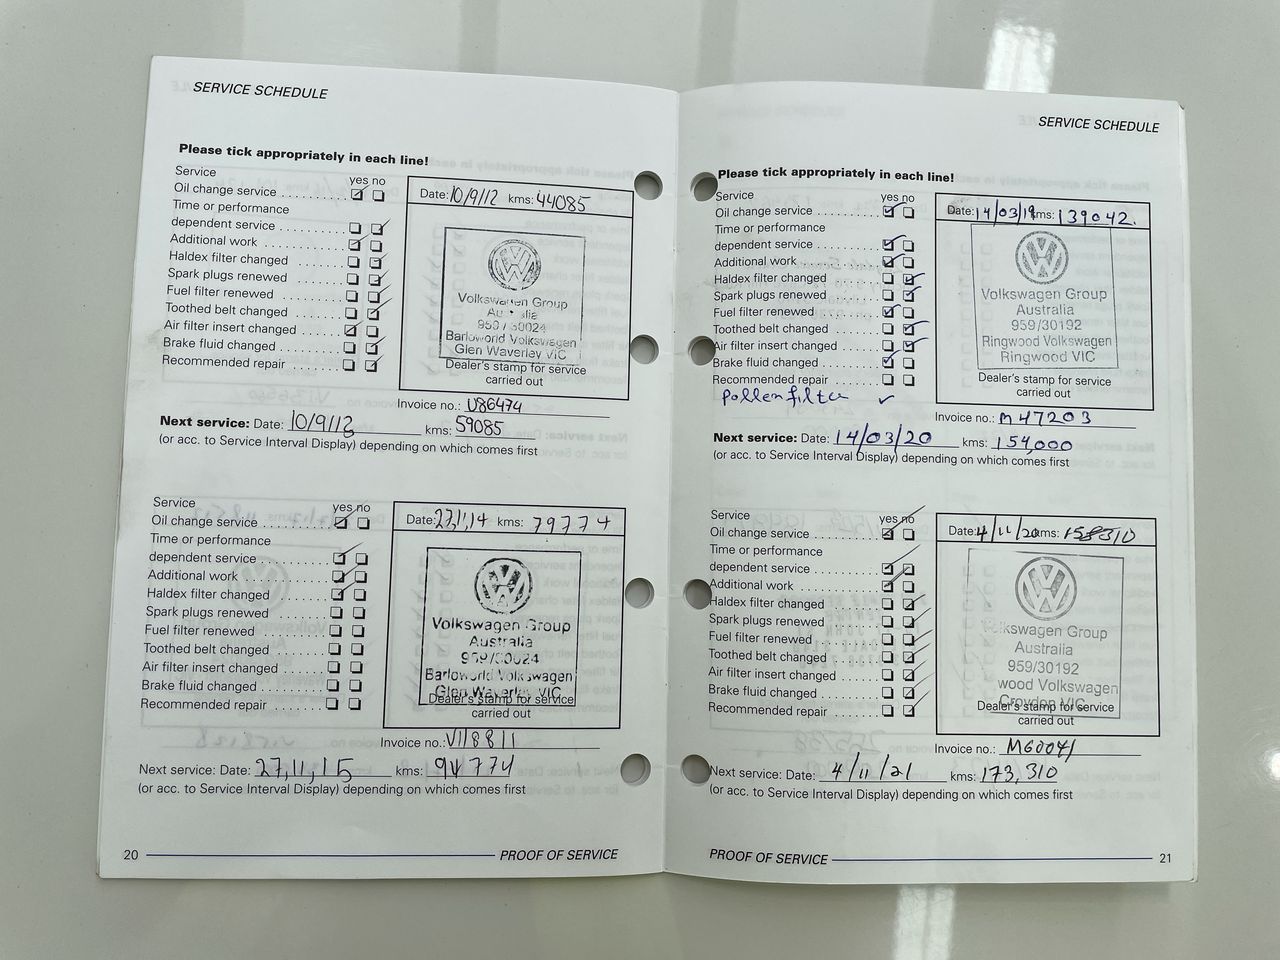 SERVICE SCHEDULE
Please tick appropriately in each line!
Service
yes no
Oil change service
Time or performance
dependent service
Additional work
Haldex filter changed
Spark plugs renewed
Fuel filter renewed
Toothed belt changed
Air filter insert changed
Brake fluid changed
Recommended repair
Date: 10/9/12 kms: 44085
Volkswagen Group
Australia
959/30024
Barloworld Volkswagen
Glen Waverley VIC
Dealer's stamp for service
carried out
Invoice no.: U86474
Next service: Date: 10/9/13 kms: 59085
(or acc. to Service Interval Display) depending on which comes first
Service
yes no
Oil change service
Time or performance
dependent service
Additional work
Haldex filter changed
Spark plugs renewed
Fuel filter renewed
Toothed belt changed
Air filter insert changed
Brake fluid changed
Recommended repair
Date: 27,11,14 kms: 79774
Volkswagen Group
Australia
959/30024
Barloworld Volkswagen
Glen Waverley VIC
Dealer's stamp for service
carried out
Invoice no.: V118811
Next service: Date: 27,11,15 kms: 94774
(or acc. to Service Interval Display) depending on which comes first
20
PROOF OF SERVICE
SERVICE SCHEDULE
Please tick appropriately in each line!
Service
yes no
Oil change service
Time or performance
dependent service
Additional work
Haldex filter changed
Spark plugs renewed
Fuel filter renewed
Toothed belt changed
Air filter insert changed
Brake fluid changed
Recommended repair
Pollen filter
Date: 14/03/19 kms: 139042.
Volkswagen Group
Australia
959/30192
Ringwood Volkswagen
Ringwood VIC
Dealer's stamp for service
carried out
Invoice no.: M47203
Next service: Date: 14/03/20 kms: 154,000
(or acc. to Service Interval Display) depending on which comes first
Service
yes no
Oil change service
Time or performance
dependent service
Additional work
Haldex filter changed
Spark plugs renewed
Fuel filter renewed
Toothed belt changed
Air filter insert changed
Brake fluid changed
Recommended repair
Date: 4/11/20 kms: 158310
Volkswagen Group
Australia
959/30192
wood Volkswagen
Croydon VIC
Dealer's stamp for service
carried out
Invoice no.: M60041
Next service: Date: 4/11/21 kms: 173,310
(or acc. to Service Interval Display) depending on which comes first
PROOF OF SERVICE
21